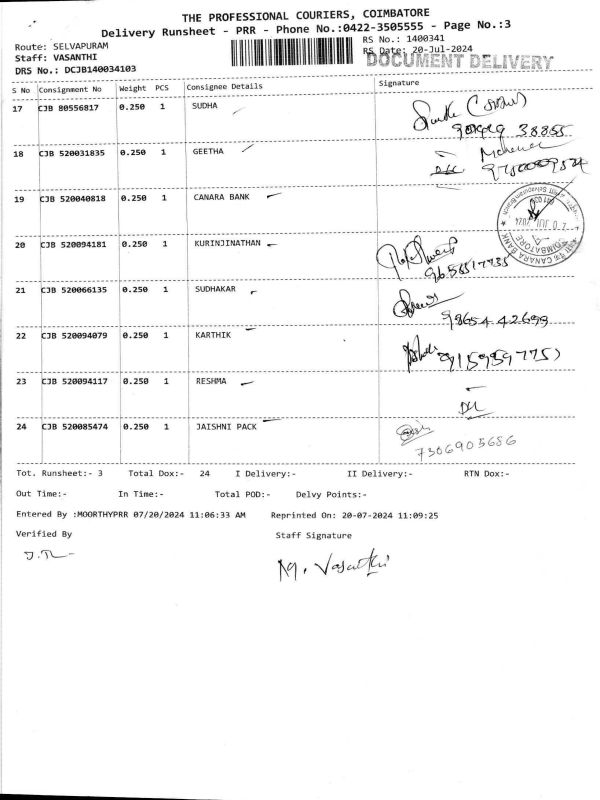 THE PROFESSIONAL COURIERS, COIMBATORE
Delivery Runsheet - PRR - Phone No.:0422-3505555 - Page No.:3
Route: SELVAPURAM RS No.: 1400341
Staff: VASANTHI RS Date: 20-Jul-2024
DOCUMENT DELIVERY
DRS No.: DCJB140034103
S No Consignment No Weight PCS Consignee Details Signature
17 CJB 80556817 0.250 1 SUDHA
38855
18 CJB 520031835 0.250 1 GEETHA
19 CJB 520040818 0.250 1 CANARA BANK
CANARA BANK
COIMBATORE
20 CJB 520094181 0.250 1 KURINJINATHAN
21 CJB 520066135 0.250 1 SUDHAKAR
98654 42699
22 CJB 520094079 0.250 1 KARTHIK
9159597751
23 CJB 520094117 0.250 1 RESHMA
24 CJB 520085474 0.250 1 JAISHNI PACK
7306905686
Tot. Runsheet:- 3 Total Dox:- 24 I Delivery:- II Delivery:- RTN Dox:-
Out Time:- In Time:- Total POD:- Delvy Points:-
Entered By :MOORTHYPRR 07/20/2024 11:06:33 AM Reprinted On: 20-07-2024 11:09:25
Verified By Staff Signature
M. Vasanthi